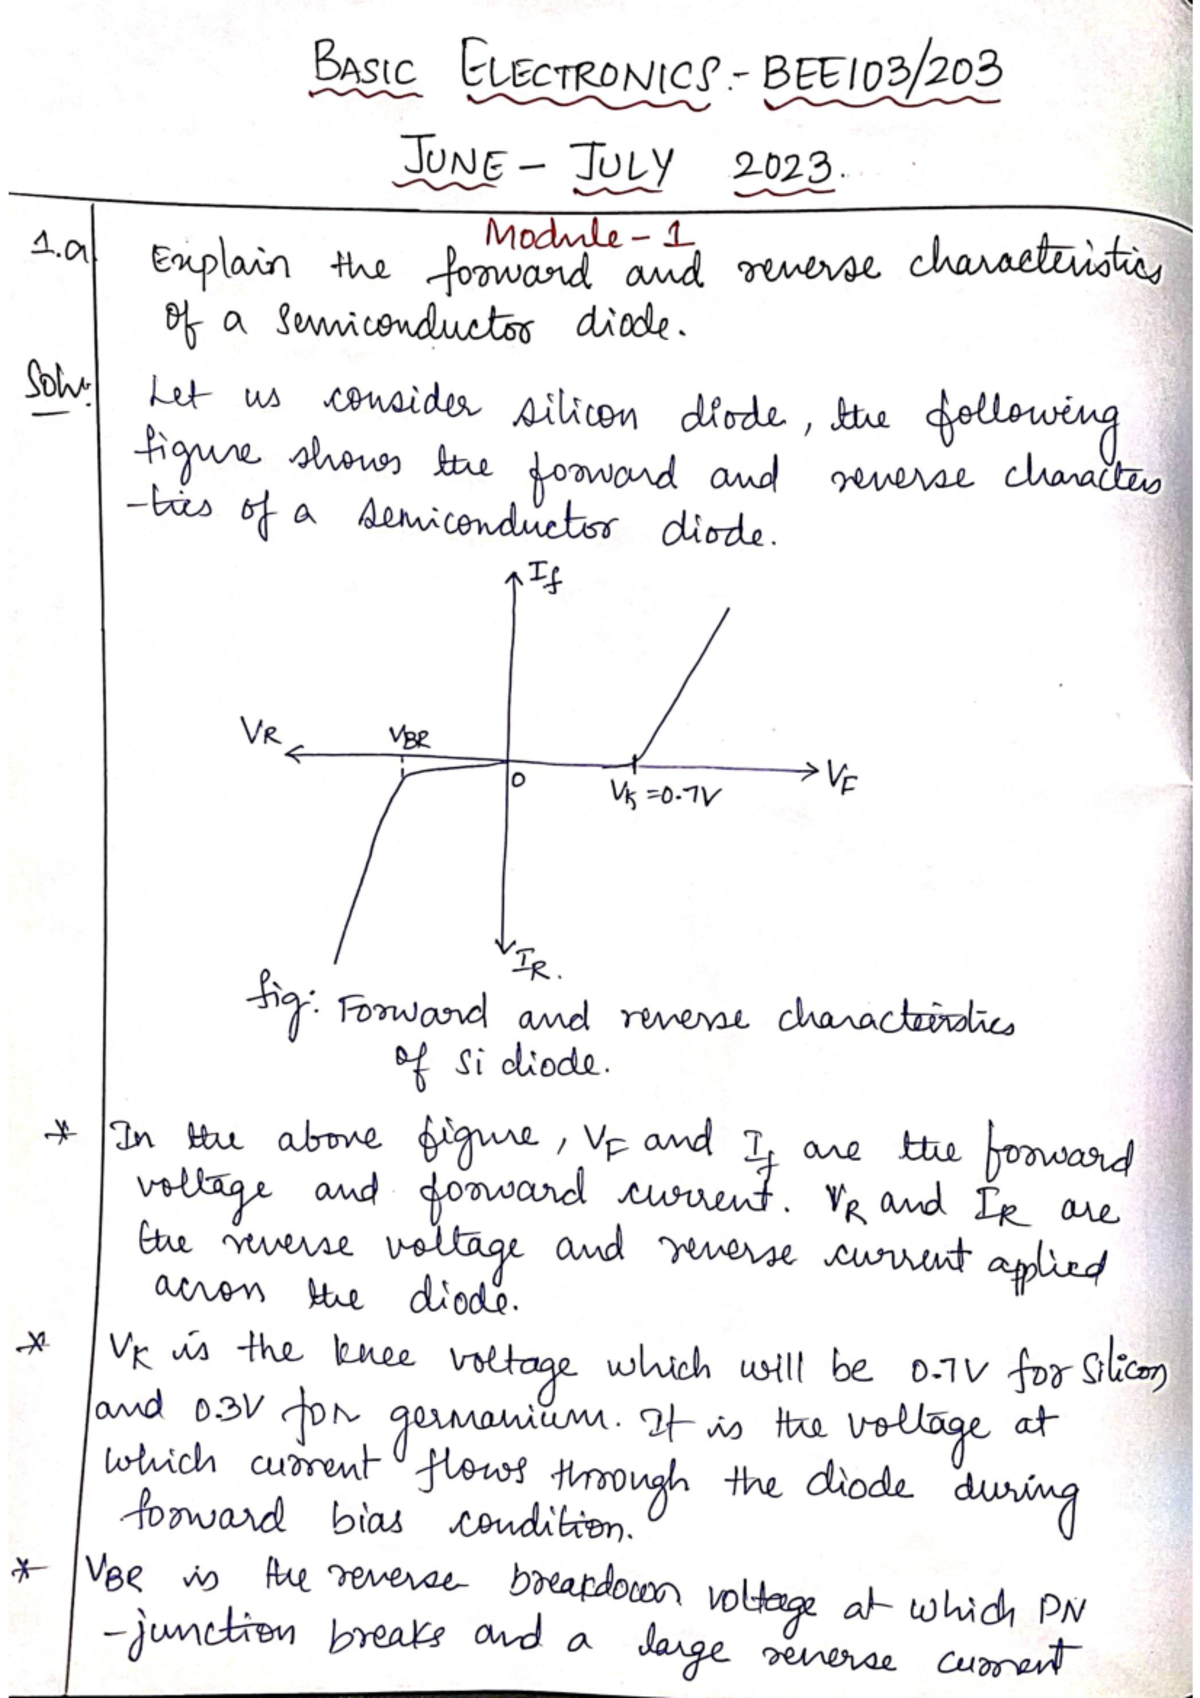 BASIC ELECTRONICS:- BEE103/203
JUNE - JULY 2023.
Module - 1
1.a Explain the forward and reverse characteristics
of a semiconductor diode.
Soln: Let us consider silicon diode, the following
figure shows the forward and reverse characteris
-tics of a semiconductor diode.
If
VR VBR
0 VK = 0.7V VF
IR.
fig: Forward and reverse characteristics
of Si diode.
* In the above figure, VF and If are the forward
voltage and forward current. VR and IR are
the reverse voltage and reverse current applied
across the diode.
* VK is the knee voltage which will be 0.7V for Silicon
and 0.3V for germanium. It is the voltage at
which current flows through the diode during
forward bias condition.
* VBR is the reverse breakdown voltage at which PN
-junction breaks and a large reverse current